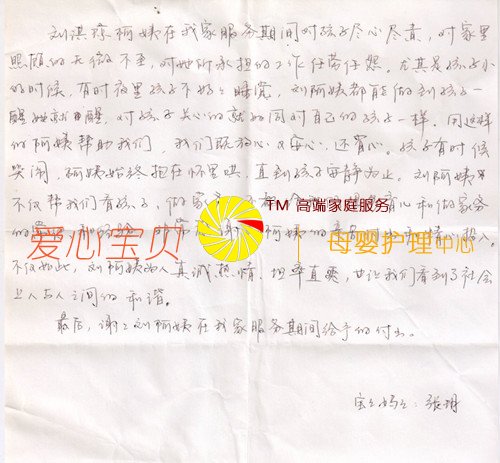 刘淇琼阿姨在我家服务期间对孩子尽心尽责,对家里
照顾的无微不至,对她所承担的工作任劳任怨。尤其是孩子小
的时候,有时夜里孩子不好好睡觉,刘阿姨都能做到孩子一
醒她就醒,对孩子关心的就如同对自己的孩子一样。用这样
的阿姨帮助我们,我们既放心又安心,还省心。孩子有时候
哭闹,阿姨始终抱在怀里哄,直到孩子安静为止。刘阿姨
不仅帮我们看孩子,做家务 心和做家务
TM 高端家庭服务
爱心宝贝 母婴护理中心
阿姨的
不仅如此,刘阿姨为人真诚热情,坦率直爽,也让我们看到了社会
上人与人之间的和谐。
最后,谢谢刘阿姨在我家服务期间给予的付出。
宝宝妈妈:张玥